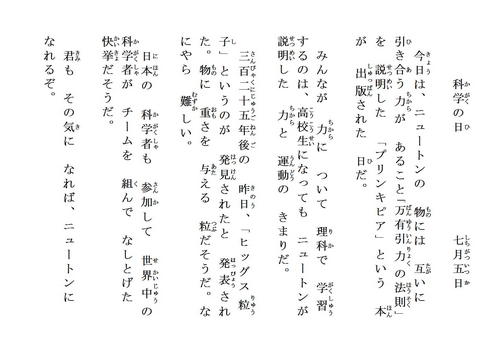 科学の日　七月五日
今日は、ニュートンの　物には　互いに
引き合う　力が　あること「万有引力の法則」
を　説明した　「プリンキピア」という　本
が　出版された　日だ。
みんなが　力に　ついて　理科で　学習
するのは、高校生になっても　ニュートンが
説明した　力と　運動の　きまりだ。
三百二十五年後の　昨日、「ヒッグス　粒
子」というのが　発見されたと　発表され
た。物に　重さを　与える　粒だそうだ。な
にやら　難しい。
日本の　科学者も　参加して　世界中の
科学者が　チームを　組んで　なしとげた
快挙だそうだ。
君も　その気に　なれば、ニュートンに
なれるぞ。